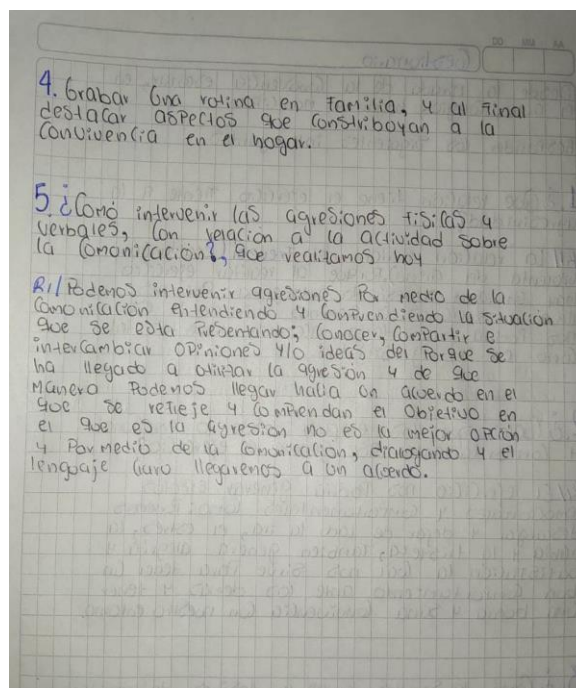 4. Grabar una rotina en familia, y al final
destacar aspectos que constriboyan a la
Convivencia en el hogar.
5. ¿Como intervenir las agresiones fisicas y
verbales, con relacion a la actividad sobre
la comonicación?, que realitamos hoy
R1/ Podemos intervenir agresiones por medio de la
comonicación entendiendo y comprendiendo la situación
que se esta presentando; conocer, compartir e
intercambiar opiniones y/o ideas del porque se
ha llegado a otilizar la agresión y de que
manera podemos llegar hacia un acuerdo en el
que se refleje y comprendan el objetivo en
el que es la agresion no es la mejor opción
y por medio de la comonicación, dialogando y el
lenguaje claro llegaremos a un acuerdo.